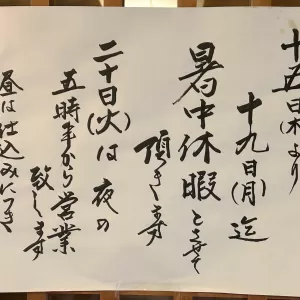 十五日(木)より
十九日(月)迄
暑中休暇とさせて
頂きます
二十日(火)は夜の
五時半から営業
致します
昼は仕込みにつき